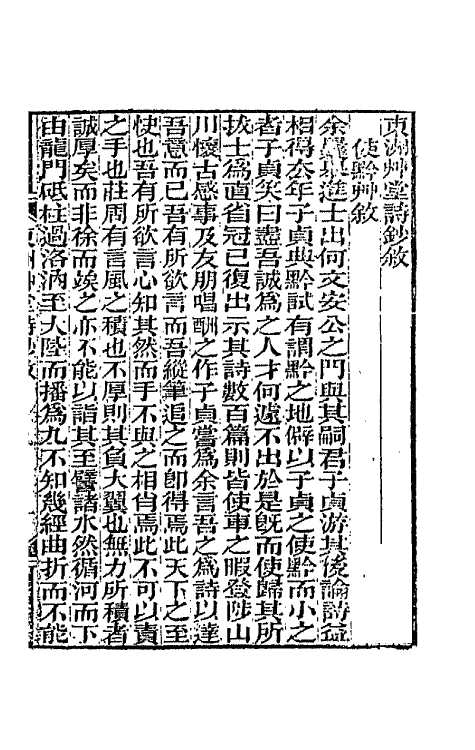 東洲艸堂詩鈔敘
使黔艸敘
余舉進士出何文安公之門與其嗣君子貞游其後論詩益
相得去年子貞典黔試有謂黔之地僻以子貞之使黔而小之
者子貞笑曰盡吾誠為之人才何遽不出於是旣而使歸其所
拔士爲直省冠已復出示其詩數百篇則皆使車之暇登陟山
川懷古感事及友朋唱酬之作子貞嘗爲余言吾之爲詩以達
吾意而已吾有所欲言而吾縱筆追之而卽得焉此天下之至
快也吾有所欲言心知其然而手不與之相肖焉此不可以責
之手也莊周有言風之積也不厚則其負大翼也無力所積者
誠厚矣而非徐而竢之亦不能以詣其至譬諸水然循河而下
由龍門砥柱過洛汭至大陸而播爲九不知幾經曲折而不能